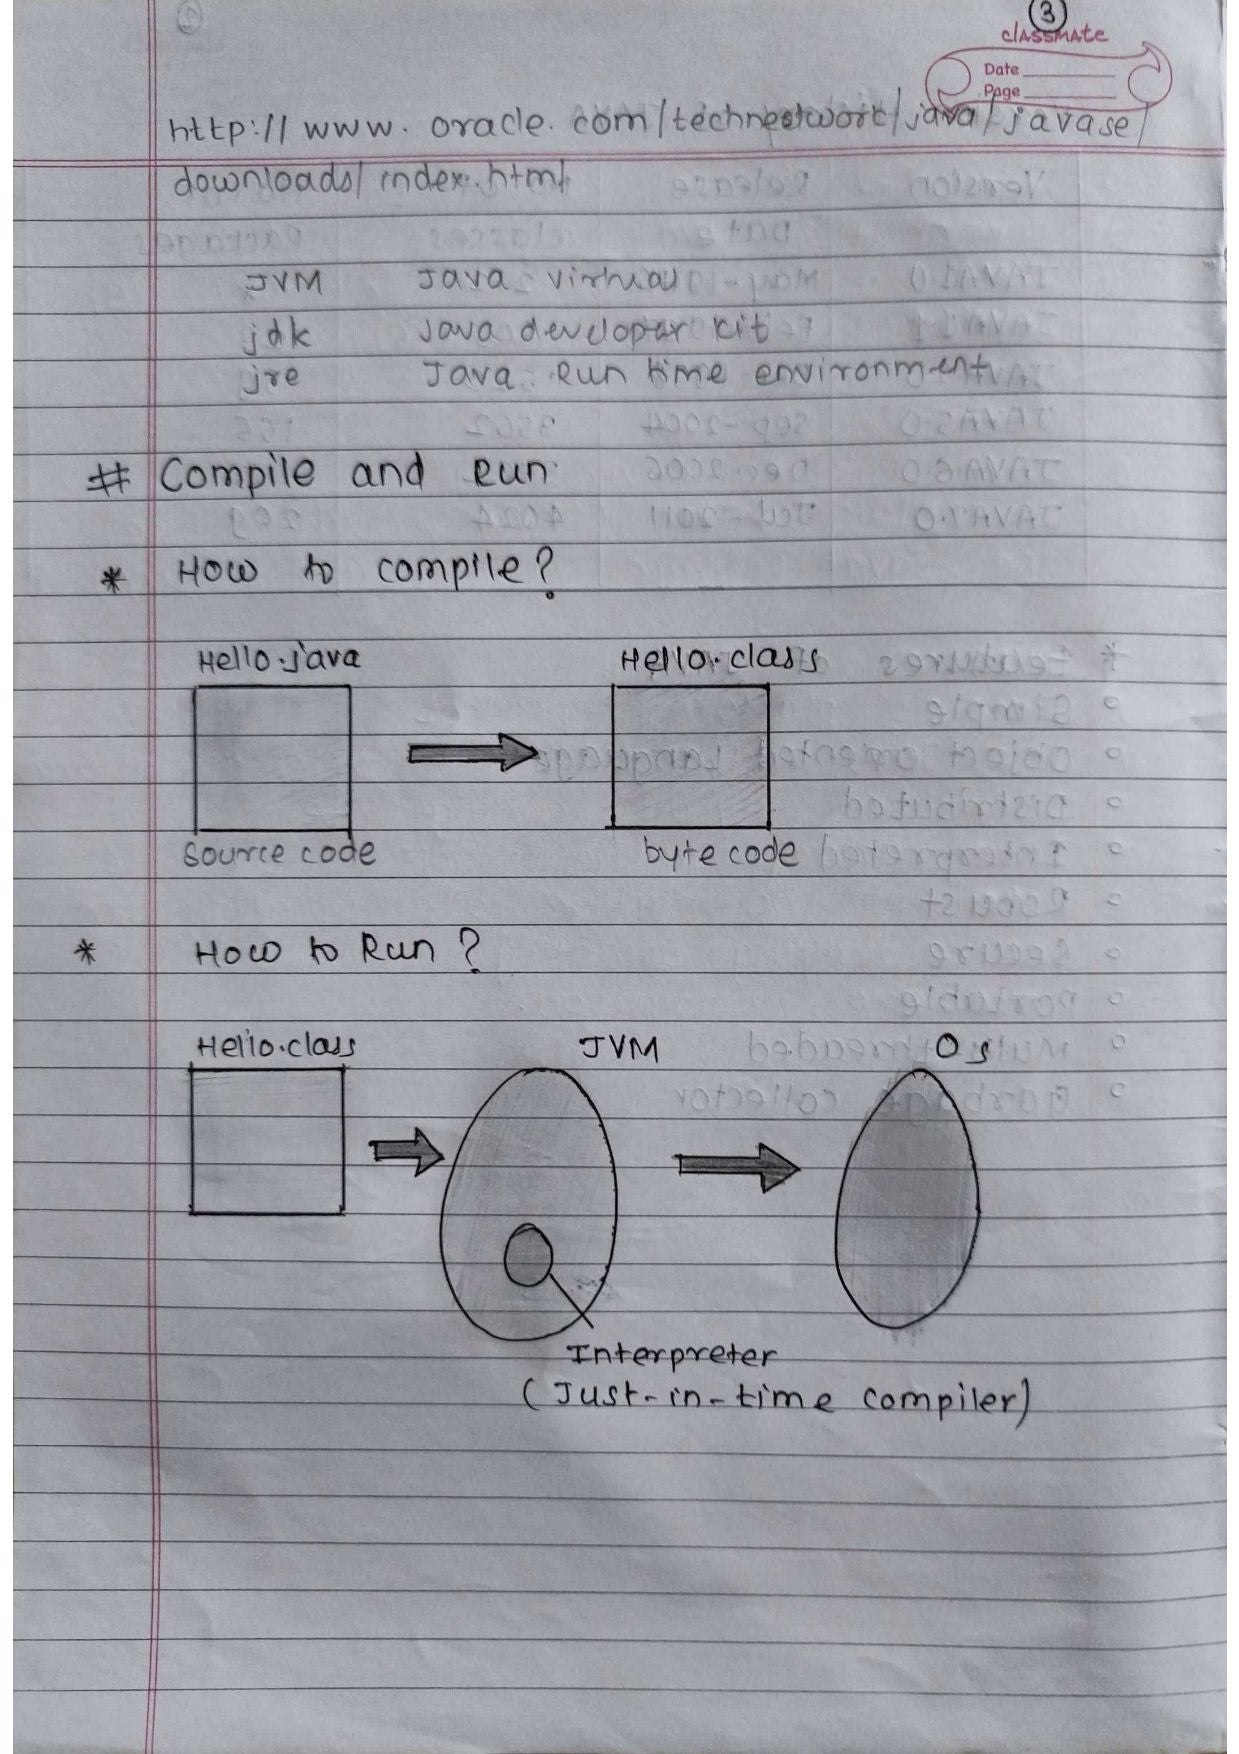 3
classmate
Date
Page
http://www.oracle.com/technetwork/java/javase/
downloads/index.html
JVM Java virtual
jdk Java developer kit
jre Java Run time environment
# Compile and Run
* How to compile?
Hello.java Hello.class
Source code byte code
* How to Run?
Hello.class JVM Os
Interpreter
(Just-in-time compiler)